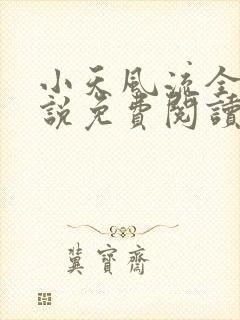 小天風流全
說免費閱讀
冀寶齋